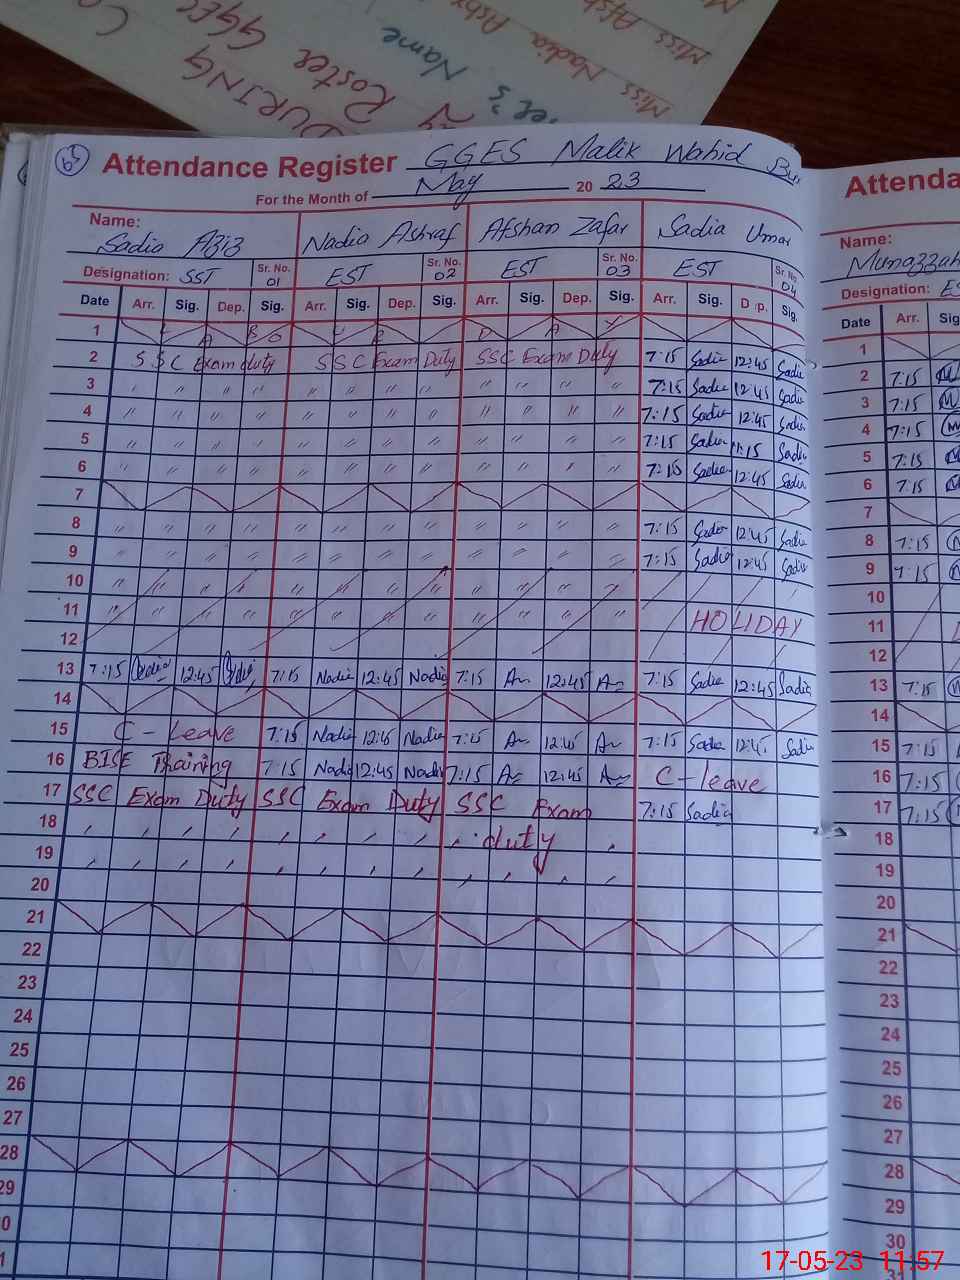 Miss Afsh
Miss Nadia Ashr
Name
DURING
Roster GGES
Attendance Register GGES Malik Wahid Bu
For the Month of May 20 23
Name: Sadia Aziz Nadia Ashraf Afshan Zafar Sadia Umar
Designation: SST Sr. No. 01 EST Sr. No. 02 EST Sr. No. 03 EST Sr. No. 04
Date Arr. Sig. Dep. Sig. Arr. Sig. Dep. Sig. Arr. Sig. Dep. Sig. Arr. Sig. Dep. Sig.
1 L A B O U R D A Y
2 SSC Exam duty SSC Exam Duty SSC Exam Duty 7:15 Sadia 12:45 Sadia
3 " " " " " " " " " " " 7:15 Sadia 12:45 Sadia
4 " " " " " " " " " " " " 7:15 Sadia 12:45 Sadia
5 " " " " " " " " " " " " 7:15 Sadia 11:15 Sadia
6 " " " " " " " " " " " " 7:15 Sadia 12:45 Sadia
7
8 " " " " " " " " " " " " 7:15 Sadia 12:45 Sadia
9 " " " " " " " " " " " " 7:15 Sadia 12:45 Sadia
10 " " " " " " " " " " " "
11 " " " " " " " " " " " " HOLIDAY
12
13 7:15 Sadia 12:45 Sadia 7:15 Nadia 12:45 Nadia 7:15 12:45 7:15 Sadia 12:45 Sadia
14
15 C - Leave 7:15 Nadia 12:45 Nadia 7:15 12:45 7:15 Sadia 12:45 Sadia
16 BISE Training 7:15 Nadia 12:45 Nadia 7:15 12:45 C - leave
17 SSC Exam Duty SSC Exam Duty SSC Exam 7:15 Sadia
18 duty
19
20
21
22
23
24
25
26
27
28
29
0
1
Attenda
Name:
Munazzah
Designation: ES
Date Arr. Sig
1
2 7:15
3 7:15
4 7:15
5 7:15
6 7:15
7
8 7:15
9 7:15
10
11
12
13 7:15
14
15 7:15
16 7:15
17 7:15
18
19
20
21
22
23
24
25
26
27
28
29
30
31
17-05-23 11:57